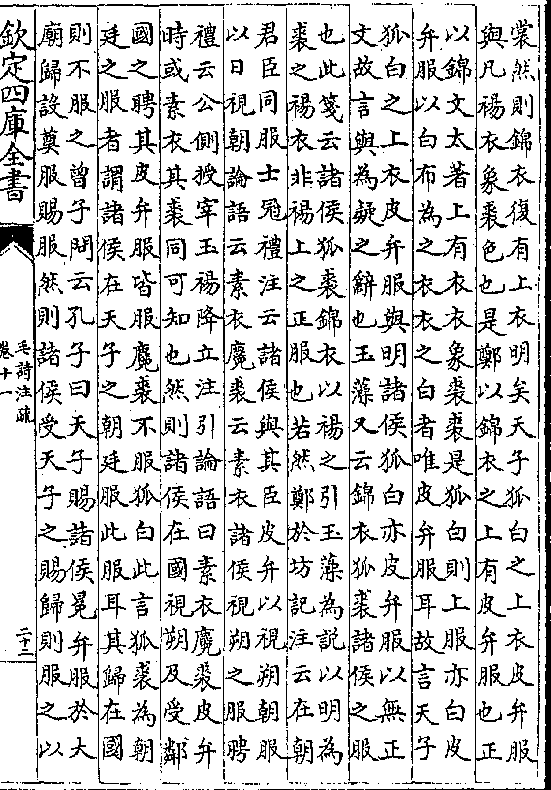 裳然則錦衣復有上衣明矣天子狐白之上衣皮弁服
與凡裼衣象裘色也是鄭以錦衣之上有皮弁服也正
以錦文太著上有衣衣象裘裘是狐白則上服亦白皮
弁服以白布為之衣衣之白者唯皮弁服耳故言天子
狐白之上衣皮弁服與明諸侯狐白亦皮弁服以無正
文故言與為疑之辭也玉藻又云錦衣狐裘諸侯之服
也此箋云諸侯狐裘錦衣以裼之引玉藻為說以明為
裘之裼衣非裼上之正服也若然鄭於坊記注云在朝
君臣同服士冠禮注云諸侯與其臣皮弁以視朔朝服
以日視朝論語云素衣麑裘云素衣諸侯視朔之服聘
禮云公側授宰玉裼降立注引論語曰素衣麑裘皮弁
時或素衣其裘同可知也然則諸侯在國視朔及受鄰
國之聘其皮弁服皆服麑裘不服狐白此言狐裘為朝
廷之服者謂諸侯在天子之朝廷服此服耳其歸在國
則不服之曾子問云孔子曰天子賜諸侯冕弁服於大
廟歸設奠服賜服然則諸侯受天子之賜歸則服之以
欽定四庫全書
毛詩注疏
卷十一
二十二